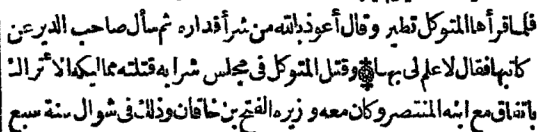 فلما قرأها المتوكل تطير وقال أعوذ بالله من شر أقداره ثم سأل صاحب الدير عن
كاتبها فقال لا علم لى بها وقتل المتوكل فى مجلس شرابه قتلته مماليكه الأتراك
باتفاق مع ابنه المنتصر وكان معه وزيره الفتح بن خاقان وذلك فى شوال سنة سبع